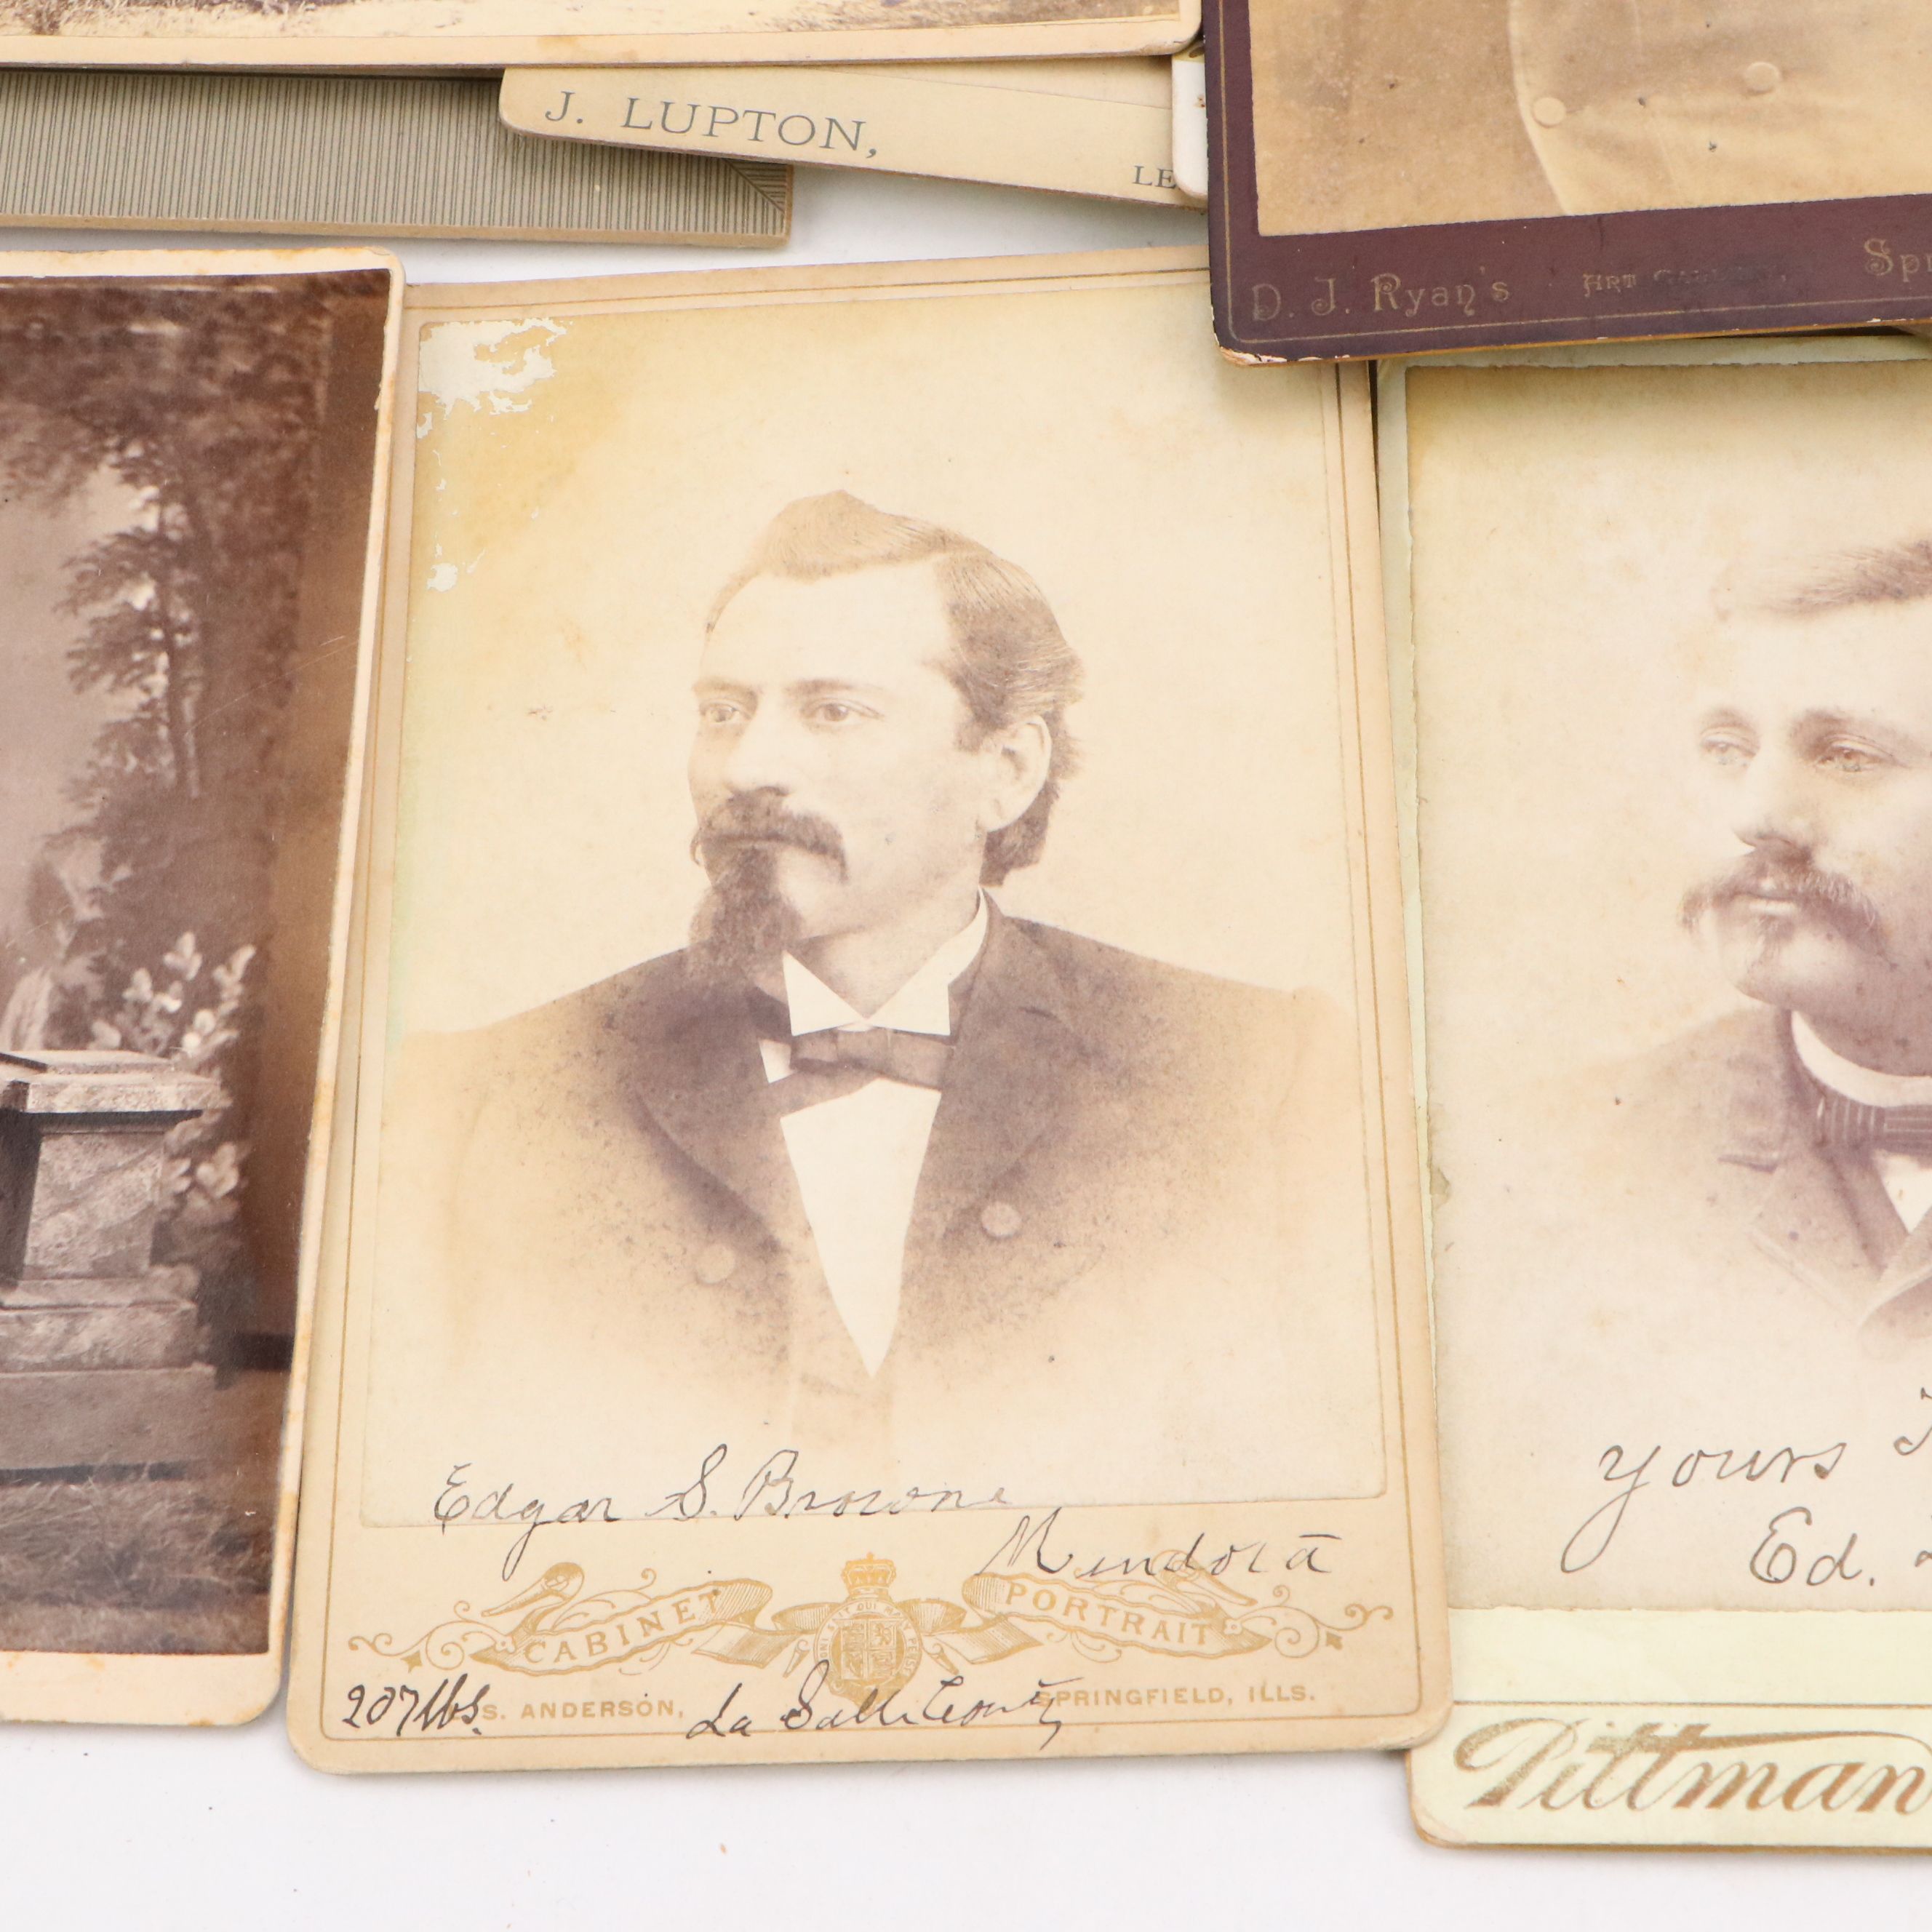 J. LUPTON,
LE
D. J. Ryan's ART Spr
Edgar S. Browne
Mendota
CABINET PORTRAIT
207 lbs. S. ANDERSON, La Salle County SPRINGFIELD, ILLS.
yours
Ed.
Pittman